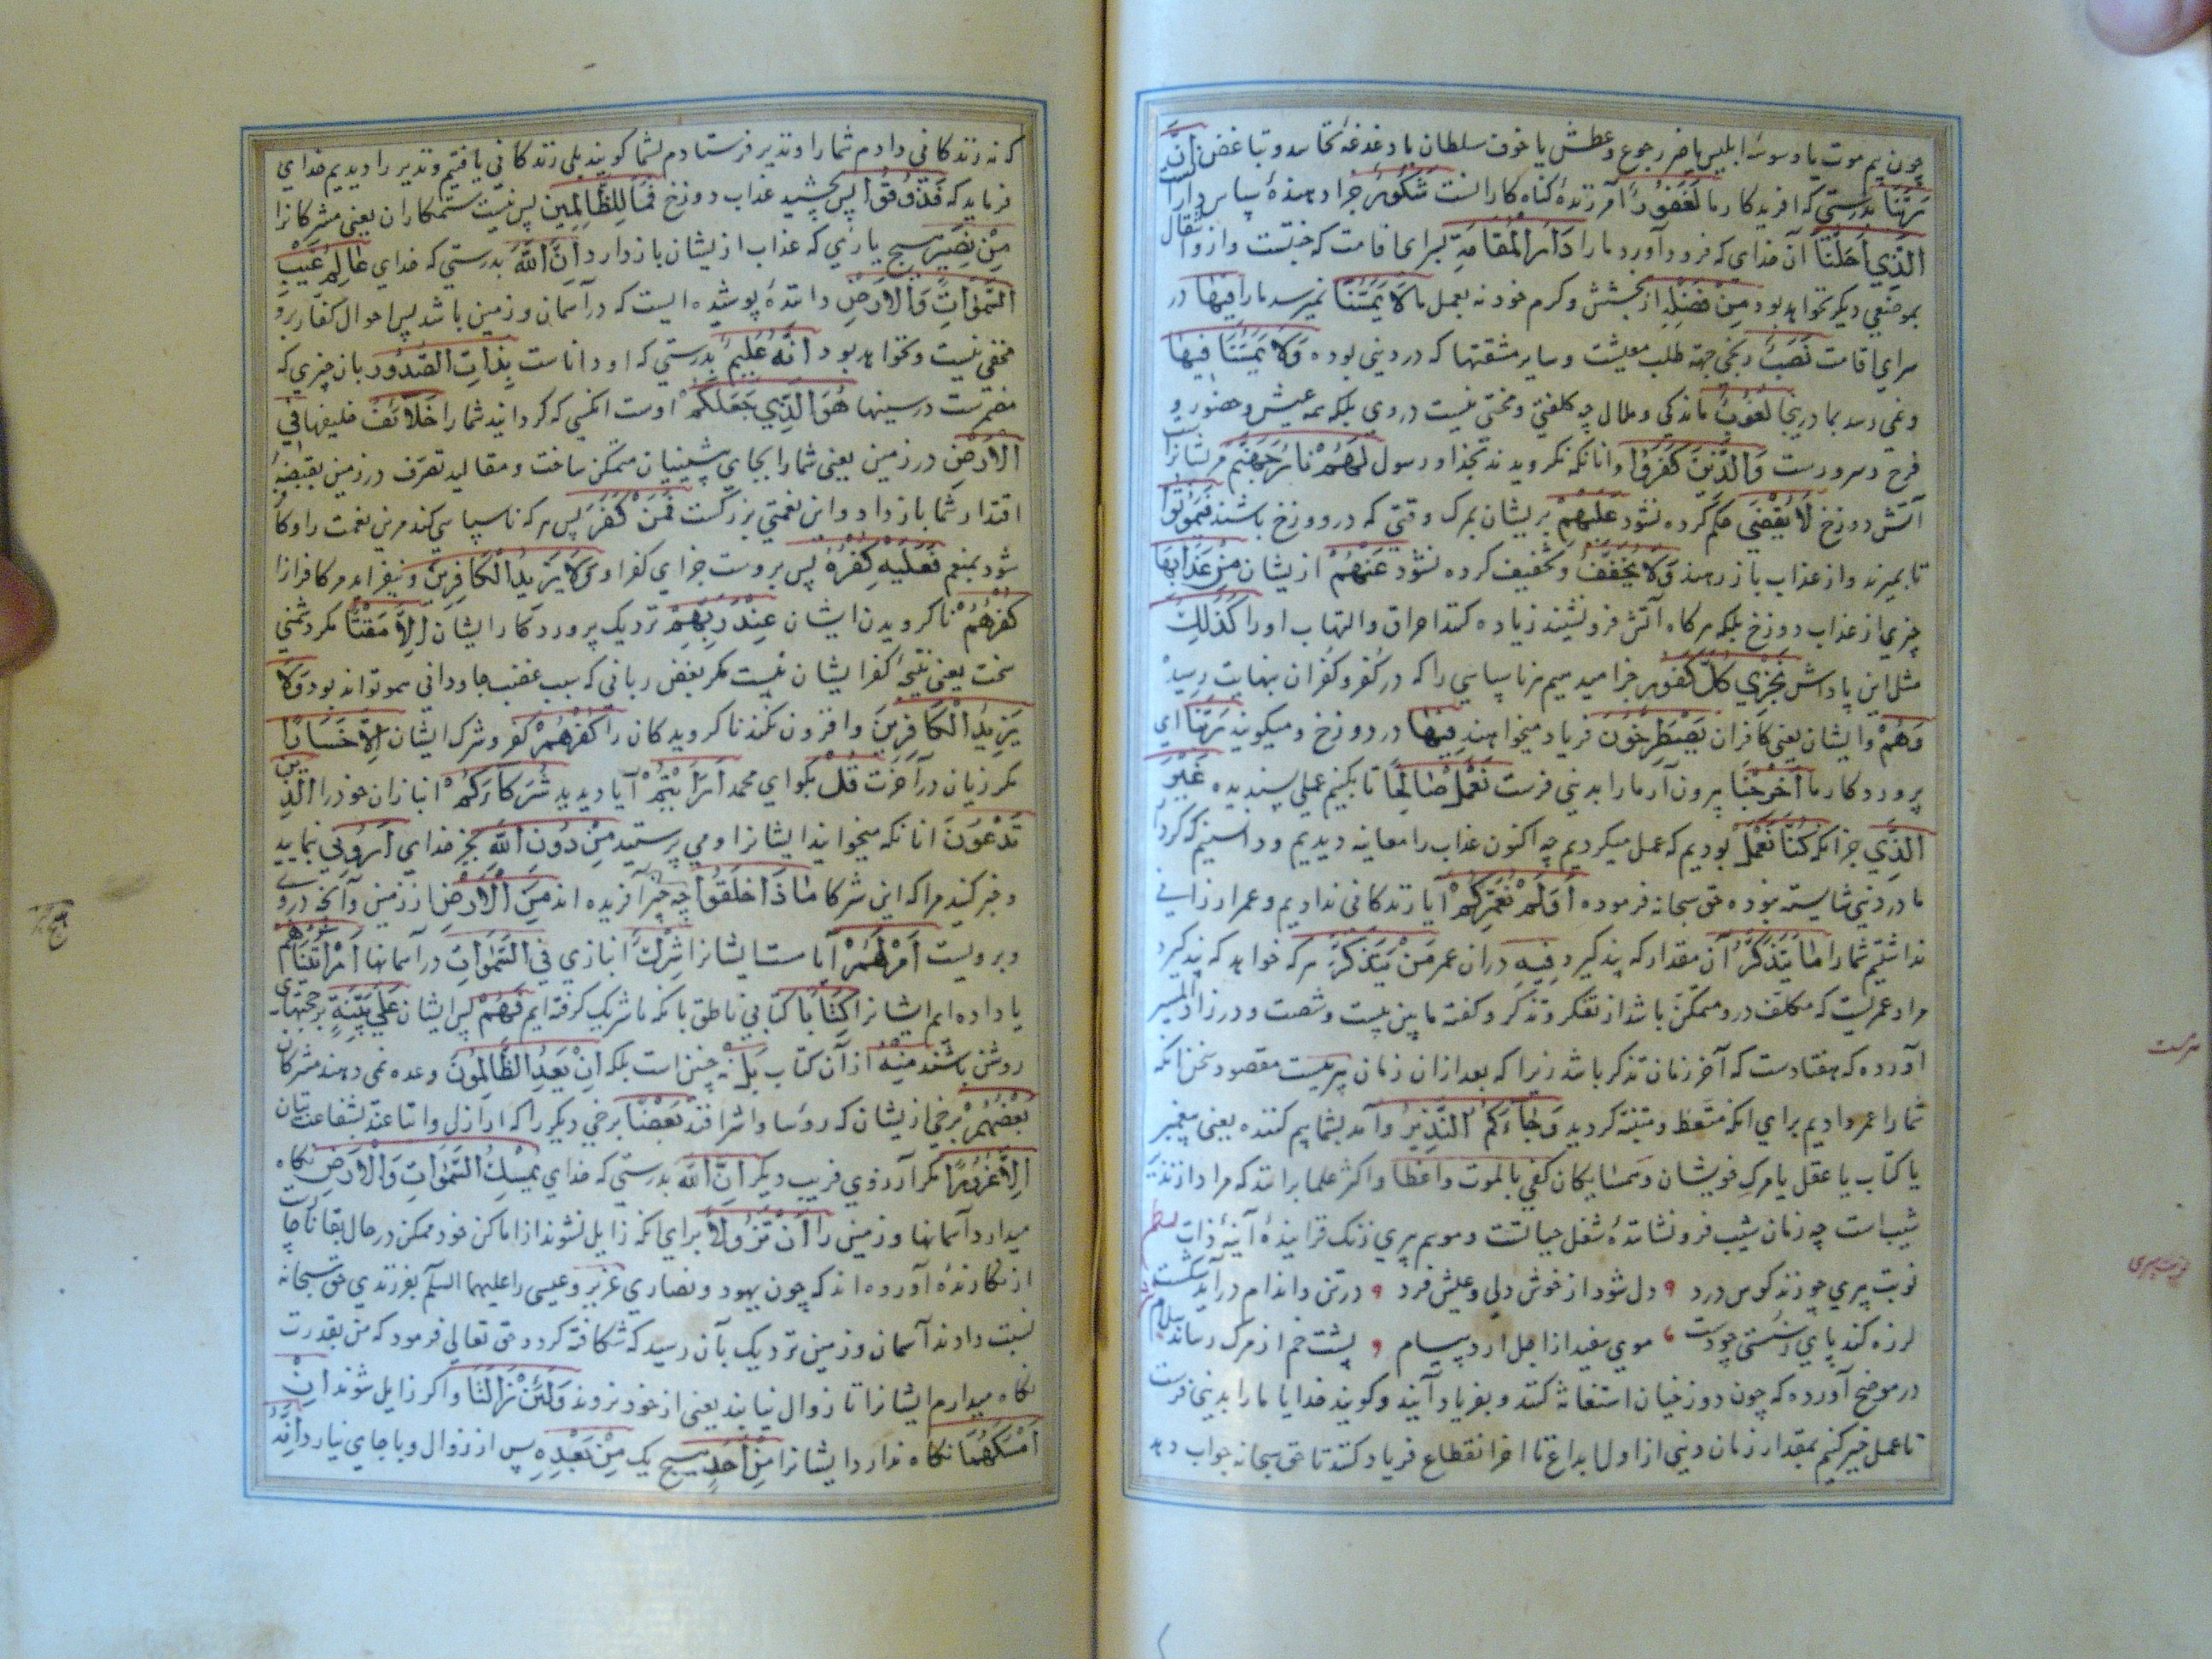 چون بیم موت یا وسوسهٔ ابلیس یا ضرر جوع و عطش یا خوف سلطان یا دغدغهٔ تحاسد و تباغض اِنَّ
رَبَّنَا بدرستی که افریدکار ما لَغَفُوْرٌ آمرزندهٔ کناه کارانست شَکُوْرٌ جزا دهندهٔ سپاس داران
الَّذِي اَحَلَّنَا آن خدای که فرود آورد ما را دَارَ الْمُقَامَةِ بسرای اقامت که جنتست و ازو انتقال
بموضعی دیکر نخواهد بود مِنْ فَضْلِهِ از بخشش و کرم خود نه بعمل ما لَا یَمَسُّنَا نمیرسد ما را فِیْهَا در
سرای اقامت نَصَبٌ رنجی جهة طلب معیشت و سایر مشقتها که در دینی بوده وَلَا یَمَسُّنَا فِیْهَا
و نمی رسد بما دریجا لُغُوْبٌ ماندکی و ملال چه کلفتی و محنتی نیست در وی بلکه همه عیش و حضور و
فرح و سرورست وَالَّذِیْنَ کَفَرُوْا وانانکه نکرویدند بخدا و رسول لَهُمْ نَارُ جَهَنَّمَ مریشانراست
آتش دوزخ لَا یُقْضٰی حکم کرده نشود عَلَیْهِمْ بریشان بمرک وقتی که در دوزخ باشند فَیَمُوْتُوْا
تا بمیرند و از عذاب باز رهند وَلَا یُخَفَّفُ و تخفیف کرده نشود عَنْهُمْ ازیشان مِنْ عَذَابِهَا
چیزی از عذاب دوزخ بلکه هرکاه آتش فرو نشیند زیاده کنند احراق و التهاب او را کَذٰلِكَ
مثل این پاداش نَجْزِي کُلَّ کَفُوْرٍ جزا میدهیم هر ناسپاسی را که در کفر و کفران بنهایت رسید
وَهُمْ و ایشان یعنی کافران یَصْطَرِخُوْنَ فریاد میخواهند فِیْهَا در دوزخ و میکویند رَبَّنَا ای
پروردکار ما اَخْرِجْنَا بیرون آر ما را بدنیی فرست نَعْمَلْ صَالِحًا تا بکنیم عملی پسندیده غَیْرَ
الَّذِي جز انکه کُنَّا نَعْمَلُ بودیم که عمل میکردیم چه اکنون عذاب را معاینه دیدیم و دانستیم که کردار
ما در دنیی شایسته نبوده حق سبحانه فرموده اَوَلَمْ نُعَمِّرْکُمْ آیا زندکانی ندادیم و عمر ارزانی
نداشتیم شما را مَا یَتَذَکَّرُ آن مقدار که پند کیرد فِیْهِ دران عمر مَنْ تَذَکَّرَ هرکه خواهد که پند کیرد
مراد عمریست که مکلف درو متمکن باشد از تفکر و تذکر و کفته ما بین بیست و شصت و در زاد المسیر
آورده که هفتادست که آخر زمان تذکر باشد زیرا که بعد ازان زمان پیریست مقصود سخن انکه
شما را عمر دادیم برای انکه متعظ و متنبه کردید وَجَاءَکُمُ النَّذِیْرُ و آمد بشما بیم کننده یعنی پیغمبر
یا کتاب یا عقل یا مرک خویشان و همسایکان کفی بالموت واعظا و اکثر علما برانند که مراد از نذیر
شیب است چه زمان شیب فرو نشانندهٔ شغل حیاتست و موسم پیری زنک فزایندهٔ آینهٔ ذات
نوبت پیری چو زند کوس درد دل شود از خوش دلی و عیش فرد در تن و اندام درآید شکست
لرزه کند پای ز سستی چو دست موی سفید از اجل آرد پیام پشت خم از مرک رساند سلام
در موضح آورده که چون دوزخیان استغاثه کنند و بفریاد آیند و کویند خدایا ما را بدنیی فرست
تا عمل خیر کنیم بمقدار زمان دینی از اول ابداع تا اخر انقطاع فریاد کنند تا حق سبحانه جواب دهد
که نه زندکانی دادم شما را و نذیر فرستادم بشما کویند بلی زندکانی یافتیم و نذیر را دیدیم خدای
فرماید که فَذُوْقُوْا پس بچشید عذاب دوزخ فَمَا لِلظَّالِمِیْنَ پس نیست ستمکاران یعنی مشرکانرا
مِنْ نَصِیْرٍ هیچ یاری که عذاب ازیشان باز دارد اِنَّ اللّٰهَ بدرستی که خدای عَالِمُ غَیْبِ
السَّمٰوَاتِ وَالْاَرْضِ دانندهٔ پوشیده ایست که در آسمان و زمین باشد پس احوال کفار برو
مخفی نیست و نخواهد بود اِنَّهُ عَلِیْمٌ بدرستی که او داناست بِذَاتِ الصُّدُوْرِ بان چیزی که
مضمرست در سینها هُوَ الَّذِي جَعَلَکُمْ اوست انکسی که کردانید شما را خَلَائِفَ خلیفها فِي
الْاَرْضِ در زمین یعنی شما را بجای پیشینیان متمکن ساخت و مقالید تصرف در زمین بقبضهٔ
اقتدار شما باز داد و این نعمتی بزرکست فَمَنْ کَفَرَ پس هرکه ناسپاسی کند مرین نعمت را و کافر
شود بمنعم فَعَلَیْهِ کُفْرُهُ پس بروست جزای کفر او وَلَا یَزِیْدُ الْکَافِرِیْنَ و نیفزاید مر کافرانرا
کُفْرُهُمْ ناکرویدن ایشان عِنْدَ رَبِّهِمْ نزدیک پروردکار ایشان اِلَّا مَقْتًا مکر دشمنی
سخت یعنی نتیجهٔ کفر ایشان نیست مکر بغض ربانی که سبب غضب جاودانی همو تواند بود وَلَا
یَزِیْدُ الْکَافِرِیْنَ و افزون نکند ناکرویدکان را کُفْرُهُمْ کفر و شرک ایشان اِلَّا خَسَارًا
مکر زیان در آخرت قُلْ بکو ای محمد اَرَاَیْتُمْ آیا دیدید شُرَکَاءَکُمْ انبازان خود را الَّذِیْنَ
تَدْعُوْنَ انانکه میخوانید ایشانرا و می پرستید مِنْ دُوْنِ اللّٰهِ بجز خدای اَرُوْنِي بنمایید
و خبر کنید مرا که این شرکا مَاذَا خَلَقُوْا چه چیز آفریده اند مِنَ الْاَرْضِ از زمین و آنچه دروی
و برویست اَمْ لَهُمْ آیا هست ایشانرا شِرْكٌ انبازی فِي السَّمٰوَاتِ در آسمانها اَمْ اٰتَیْنَاهُمْ
یا داده ایم ایشانرا کِتَابًا کتابی ناطق بانکه ما شریک کرفته ایم فَهُمْ پس ایشان عَلٰی بَیِّنَةٍ بر حجتهای
روشن باشند مِنْهُ از آن کتاب بَلْ نه چنین است بلکه اِنْ یَعِدُ الظَّالِمُوْنَ وعده نمی دهند مشرکان
بَعْضُهُمْ برخی ازیشان که روسا و اشرافند بَعْضًا برخی دیکر را که اراذل و اتباعند بشفاعت بتان
اِلَّا غُرُوْرًا مکر آرزوی فریب دیکر اِنَّ اللّٰهَ بدرستی که خدای یُمْسِكُ السَّمٰوَاتِ وَالْاَرْضَ نکاه
میدارد آسمانها و زمین را اَنْ تَزُوْلَا برای انکه زایل نشوند از اماکن خود ممکن در حال بقا ناچارست
از نکارنده آورده اند که چون یهود و نصاری عزیر و عیسی را علیهما السلام بفرزندی حق سبحانه
نسبت دادند آسمان و زمین نزدیک بآن رسید که شکافته کردد حق تعالی فرمود که من بقدرت
نکاه میدارم ایشانرا تا زوال نیابند یعنی از خود نروند وَلَئِنْ زَالَتَا و اکر زایل شوند اِنْ
اَمْسَکَهُمَا نکاه ندارد ایشانرا مِنْ اَحَدٍ هیچ یک مِنْ بَعْدِهِ پس از زوال و باجای نیارد اِنَّهُ